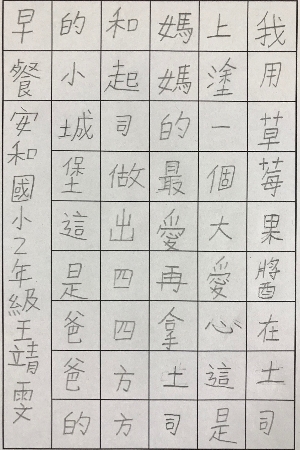 我用草莓果醬在土司
上塗一個大愛心這是
媽媽的最愛再拿土司
和起司做出四四方方
的小城堡這是爸爸的
早餐安和國小2年級王靖雯